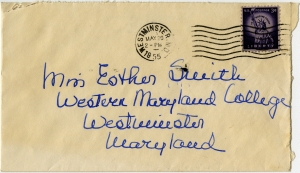 WESTMINSTER
MAY
PM
1955
3¢
LIBERTY
Miss Esther Smith
Western Maryland College
Westminster
Maryland